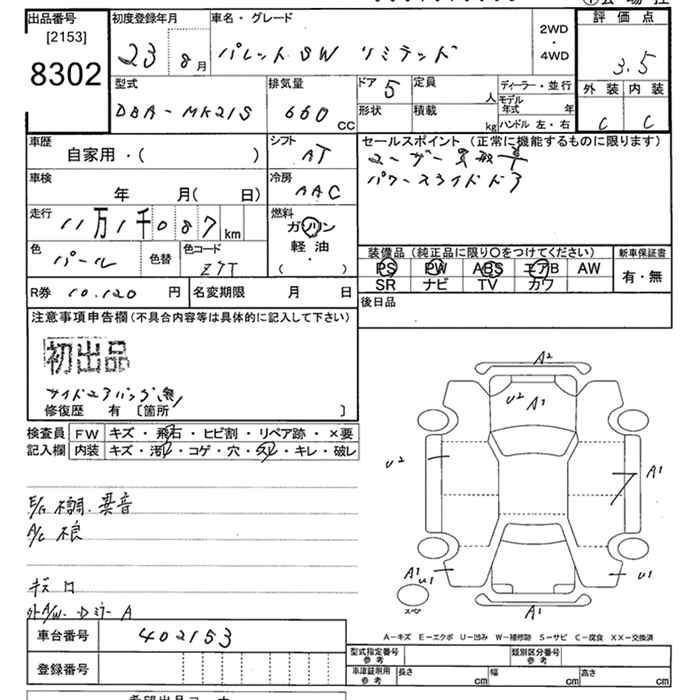 出品番号
[2153]
8302
初度登録年月
23 8月
車名・グレード
パレットSW リミテッド
2WD
・
4WD
評価点
3.5
外装 内装
C C
型式
DBA-MK21S
排気量
660 CC
ドア 5
形状
定員 人
積載 kg
ディーラー・並行
モデル年式 年
ハンドル 左・右
車歴
自家用・( )
シフト
AT
車検
年 月( 日)
冷房
AAC
走行
11万1千087km
燃料
ガソリン
軽油
( ・ )
色
パール
色替
色コード
Z7T
R券 10.120 円
名変期限 月 日
セールスポイント(正常に機能するものに限ります)
ユーザー買取車
パワースライドドア
装備品(純正品に限り○をつけてください)
PS PW ABS エアB AW
SR ナビ TV カワ
新車保証書
有・無
後日品
注意事項申告欄(不具合内容等は具体的に記入して下さい)
初出品
サイドエアバッグ無
修復歴 有 〔箇所 〕
検査員
記入欄
FW キズ・飛石・ヒビ割・リペア跡・×要
内装 キズ・汚レ・コゲ・穴・スレ・キレ・破レ
E/G 不調.異音
A/C 不良
キズ 凹
外A/W. Dミラー A
A2
U2 A1
U2
A1
A1
U1
U1
A1
スペア
A-キズ E-エクボ U-凹み W-補修跡 S-サビ C-腐食 XX-交換済
車台番号 402153
登録番号
型式指定番号
参考
類別区分番号
参考
車庫証明用
参考
長さ cm
幅 cm
高さ cm